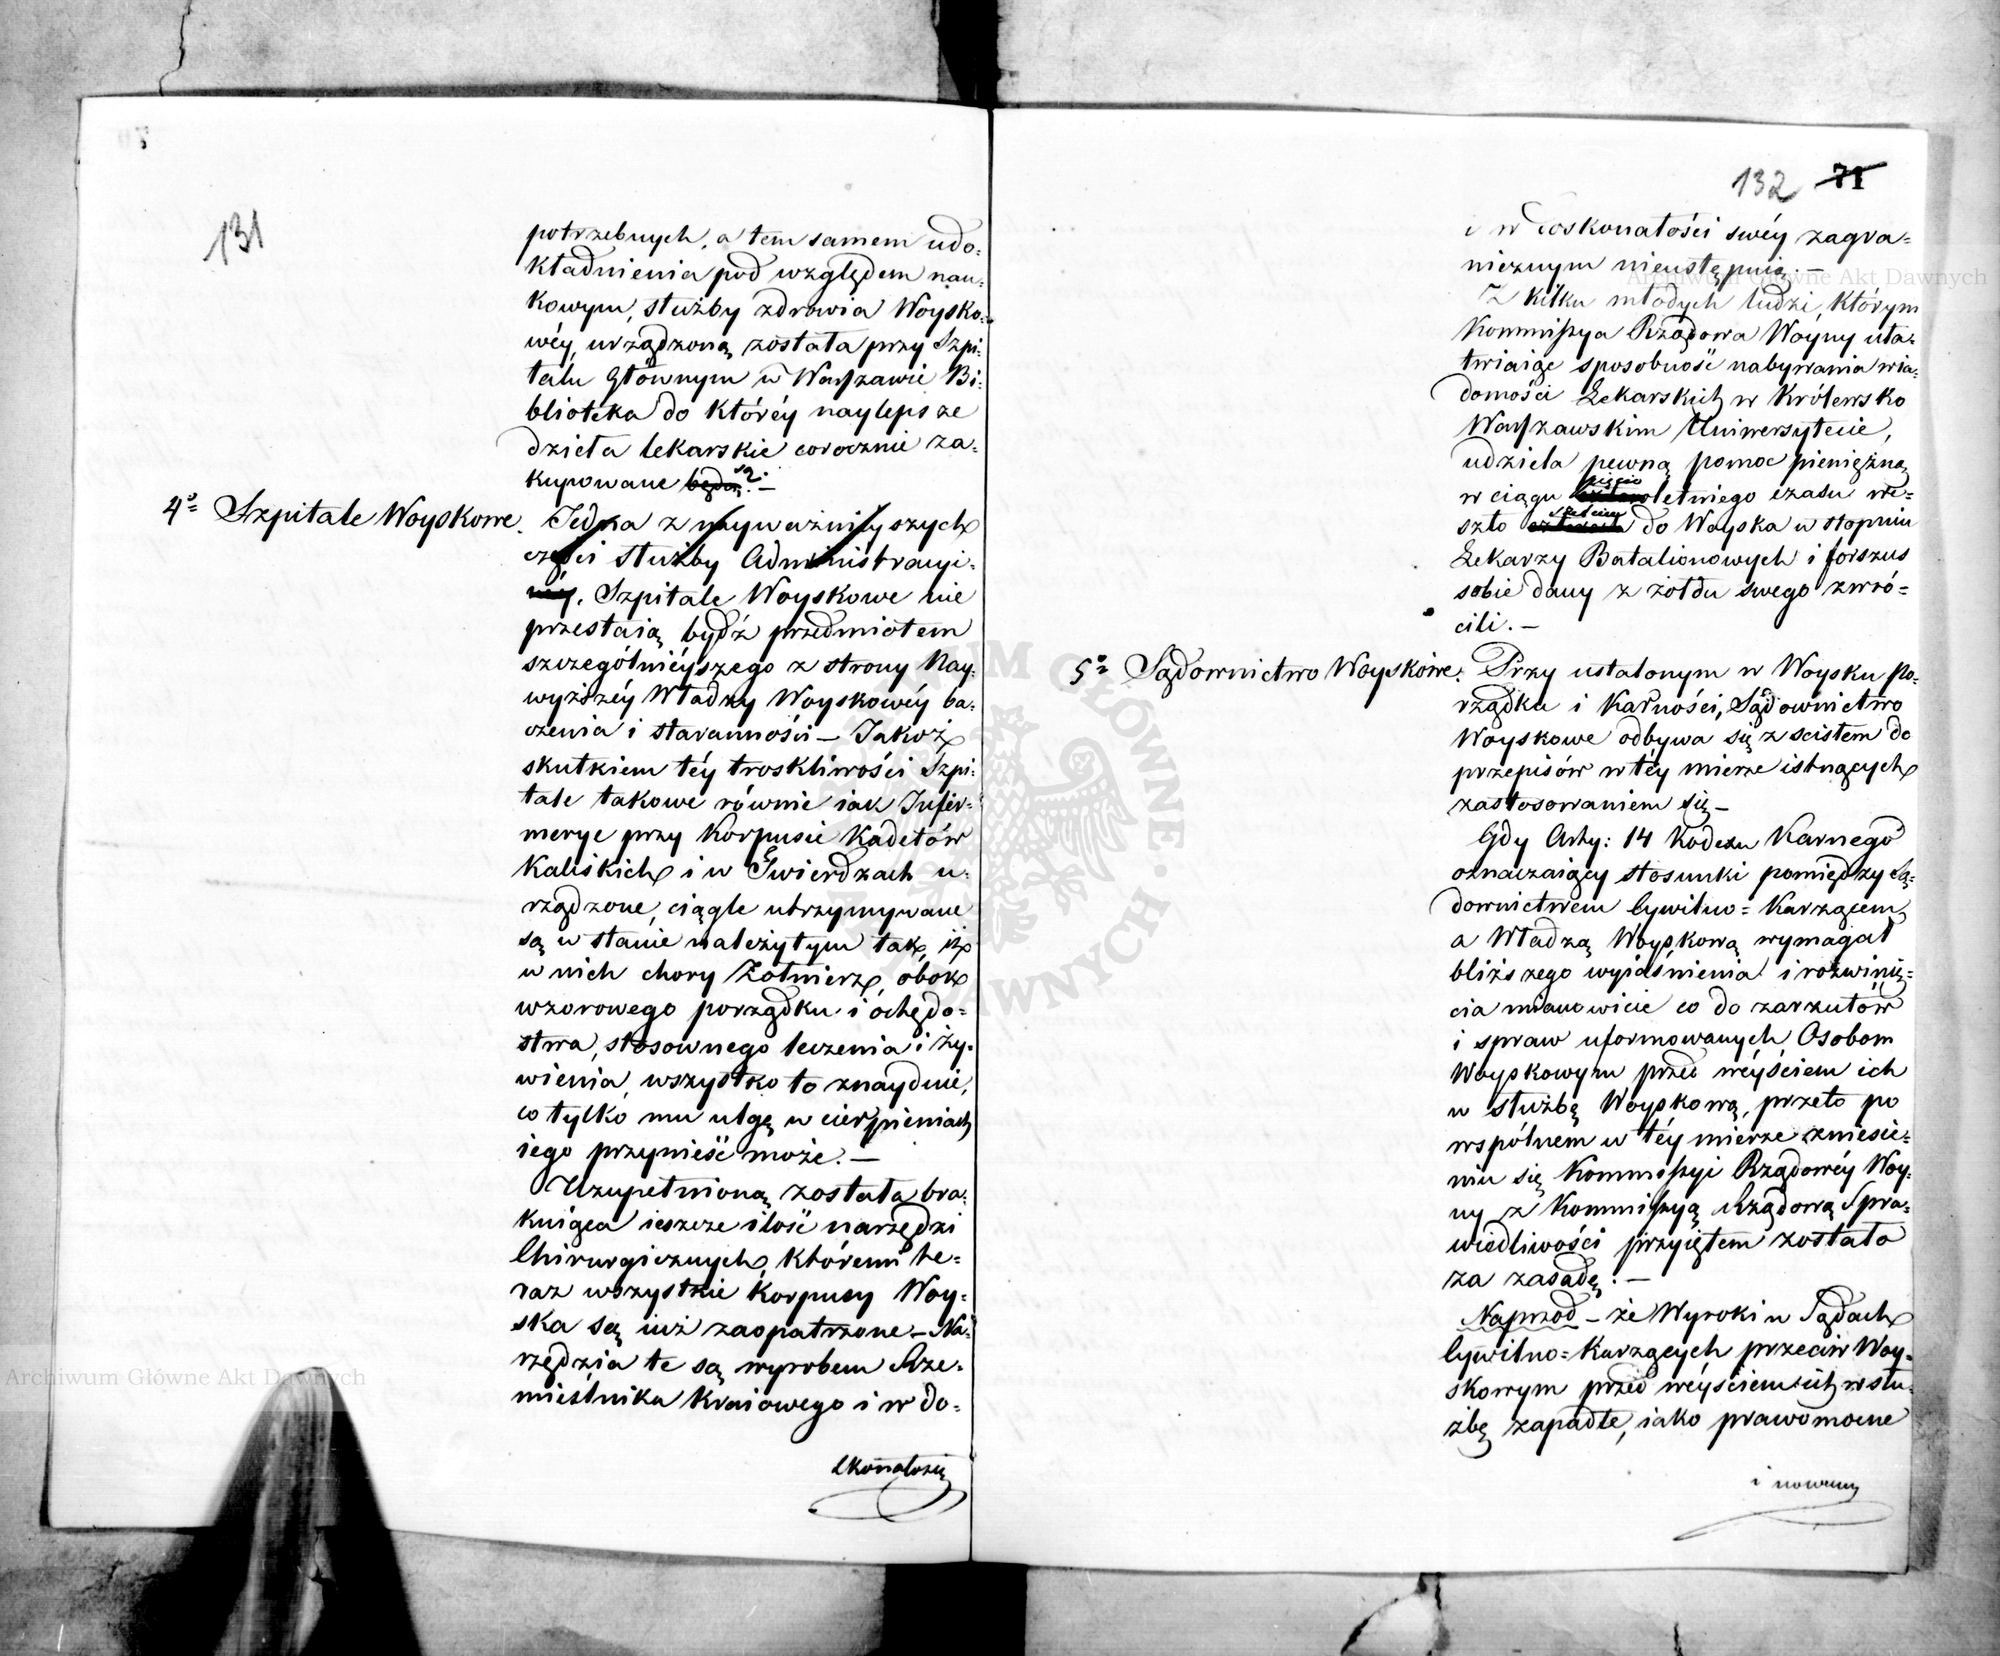 131
potrzebnych, a tem samem udo=
kładnienia pod względem nau=
kowym, służby zdrowia Woysko=
wéy, urządzoną została przy Szpi=
talu Głównym w Warszawie Bi=
blioteka do któréy naylepsze
dzieła lekarskie corocznie za=
kupowane będą są. —
4º Szpitale Woyskowe. Jedna z nayważnieyszych
części służby Administracyi=
néy. Szpitale Woyskowe nie
przestaią bydź przedmiotem
szczególnieyszego z strony Nay=
wyższéy Władzy Woyskowéy ba=
czenia i staranności — Jakoż
skutkiem téy troskliwości Szpi=
tale takowe równie iak Infir=
merye przy Korpusie Kadetów
Kaliskich i w Twierdzach u=
rządzone, ciągle utrzymywane
są w stanie należytym tak, iż
w nich chory Żołnierz, obok
wzorowego porządku i ochędo=
stwa, stosownego leczenia i ży=
wienia, wszystko to znaydzie,
co tylko mu ulgę w cierpieniach
iego przynieść może. —
Uzupełnioną została bra=
kuiąca ieszcze ilość narzędzi
Chirurgicznych, któremi te=
raz wszystkie Korpusy Woy=
ska są iuż zaopatrzone — Na=
rzędzia te są wyrobem Rze=
mieślnika Kraiowego i w do=
skonałości
132 71
i w doskonałości swéy zagra=
nicznym nieustępuią. —
Z kilku młodych ludzi, którym
Kommissya Rządowa Woyny uła=
twiaiąc sposobność nabywania wia=
domości Lekarskich w Królewsko
Warszawskim Uniwersytecie,
udziela pewną pomoc pieniężną,
pięcio
w ciągu letniego czasu we=
sześciu
szło czterech do Woyska w stopniu
Lekarzy Batalionowych i forszus
sobie dany z żołdu swego zwró=
cili. —
5º Sądownictwo Woyskowe. Przy ustalonym w Woysku po=
rządku i Karności, Sądownictwo
Woyskowe odbywa się z scisłem do
przepisów w tey mierze istnących
zastosowaniem się —
Gdy Arty: 14 Kodexu Karnego
oznaczaiący stosunki pomiędzy Są=
downictwem Cywilno = Karzącem,
a Władzą Woyskową wymagał
bliższego wyiaśnienia i rozwinię=
cia mianowicie co do zarzutów
i spraw uformowanych Osobom
Woyskowym przed weyściem ich
w służbę Woyskową, przeto po
wspólnem w téy mierze zniesie=
niu się Kommissyi Rządowéy Woy=
ny z Kommissyą Rządową Spra=
wiedliwości przyiętem zostało
za zasadę: —
Naprzod — że Wyroki w Sądach
Cywilno = Karzących przeciw Woy=
skowym przed weyściem ich w słu=
żbę zapadłe, iako prawomocne
Archiwum Główne Akt Dawnych
Archiwum Główne Akt Dawnych